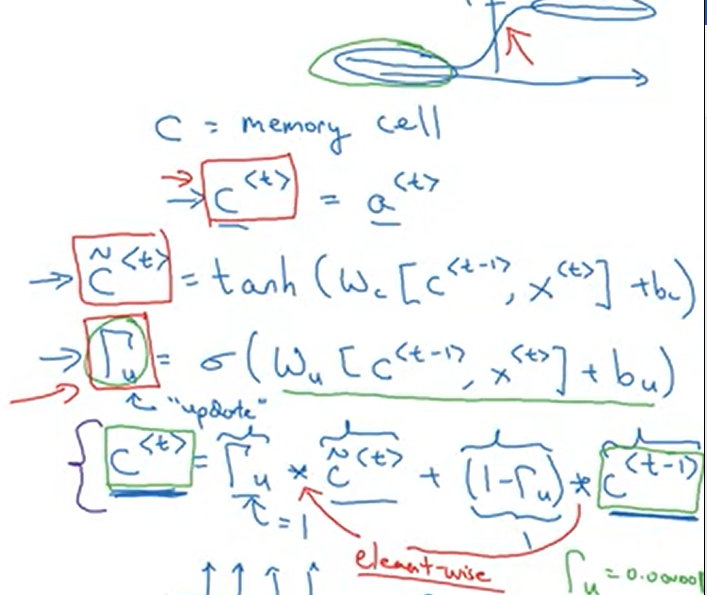 C = memory cell
C^{<t>} = a^{<t>}
→ C̃^{<t>} = tanh (W_c [C^{<t-1>}, x^{<t>}] + b_c)
→ Γ_u = σ (W_u [C^{<t-1>}, x^{<t>}] + b_u)
"update"
C^{<t>} = Γ_u * C̃^{<t>} + (1-Γ_u) * C^{<t-1>}
= 1
1
element-wise
Γ_u = 0.000001